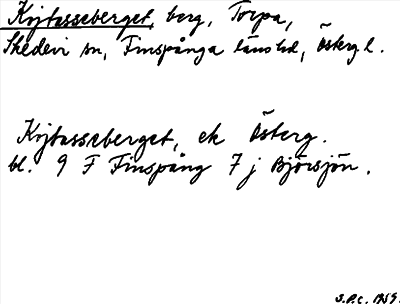 Kojtasseberget, berg, Torpa,
Skedevi sn, Finspånga länshd, Östergl.
Kojtasseberget, ek Österg.
bl. 9 F Finspång 7 j Björsjön.
S.P.C. 1959.